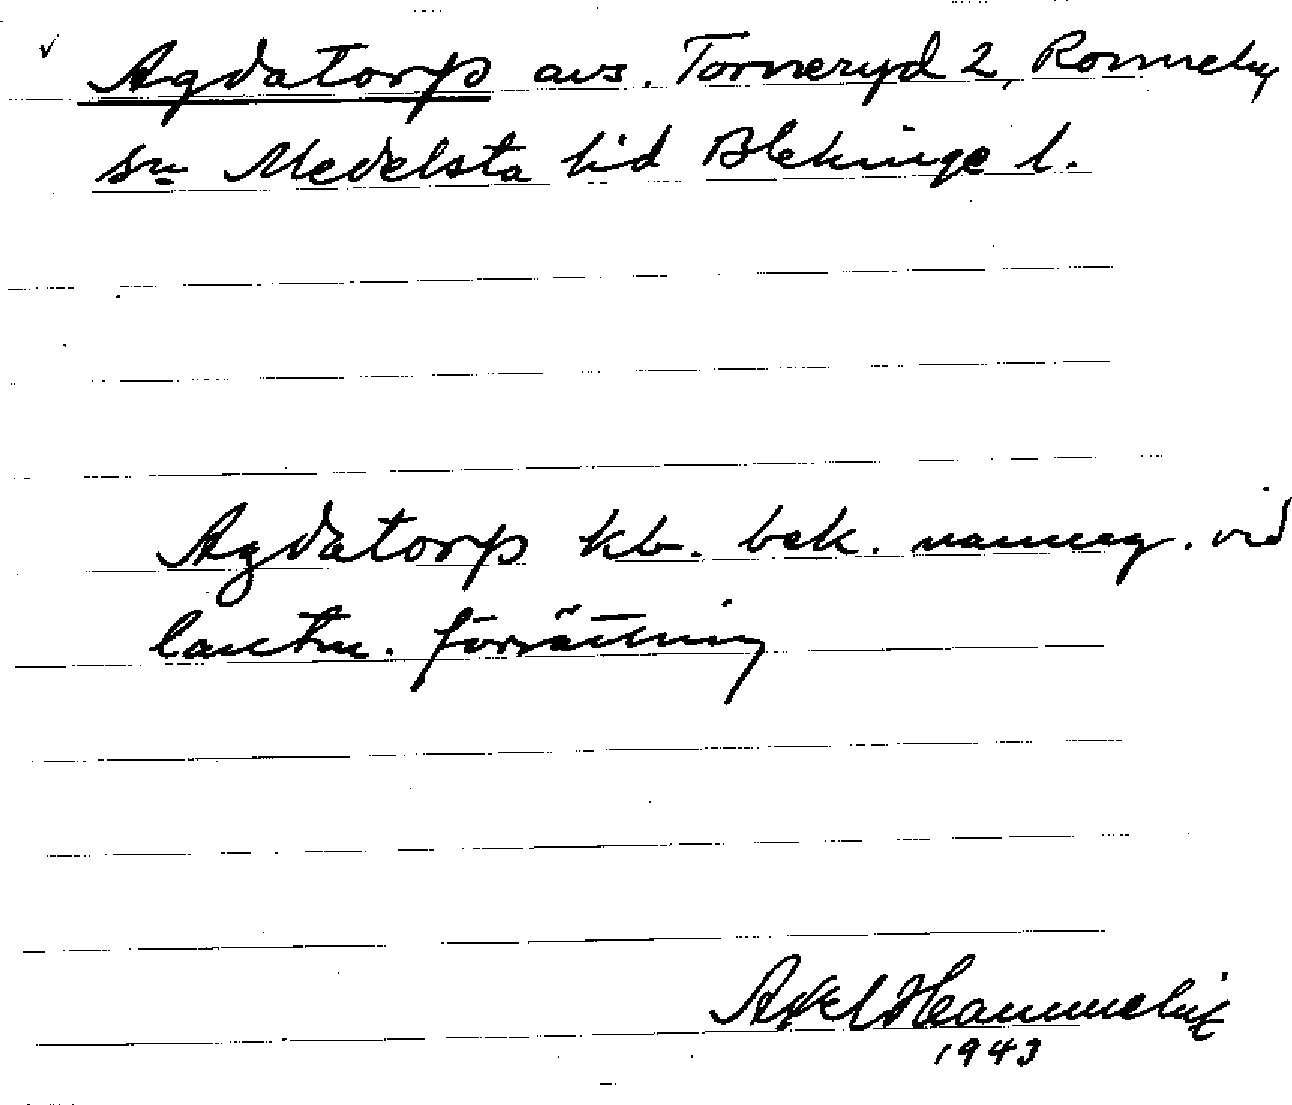 ✓ Agdatorp avs. Torneryd 2, Ronneby
sn Medelsta hd Blekinge l.
Agdatorp kb. bek. namneg. vid
lantm. förrättning
Axel
1943